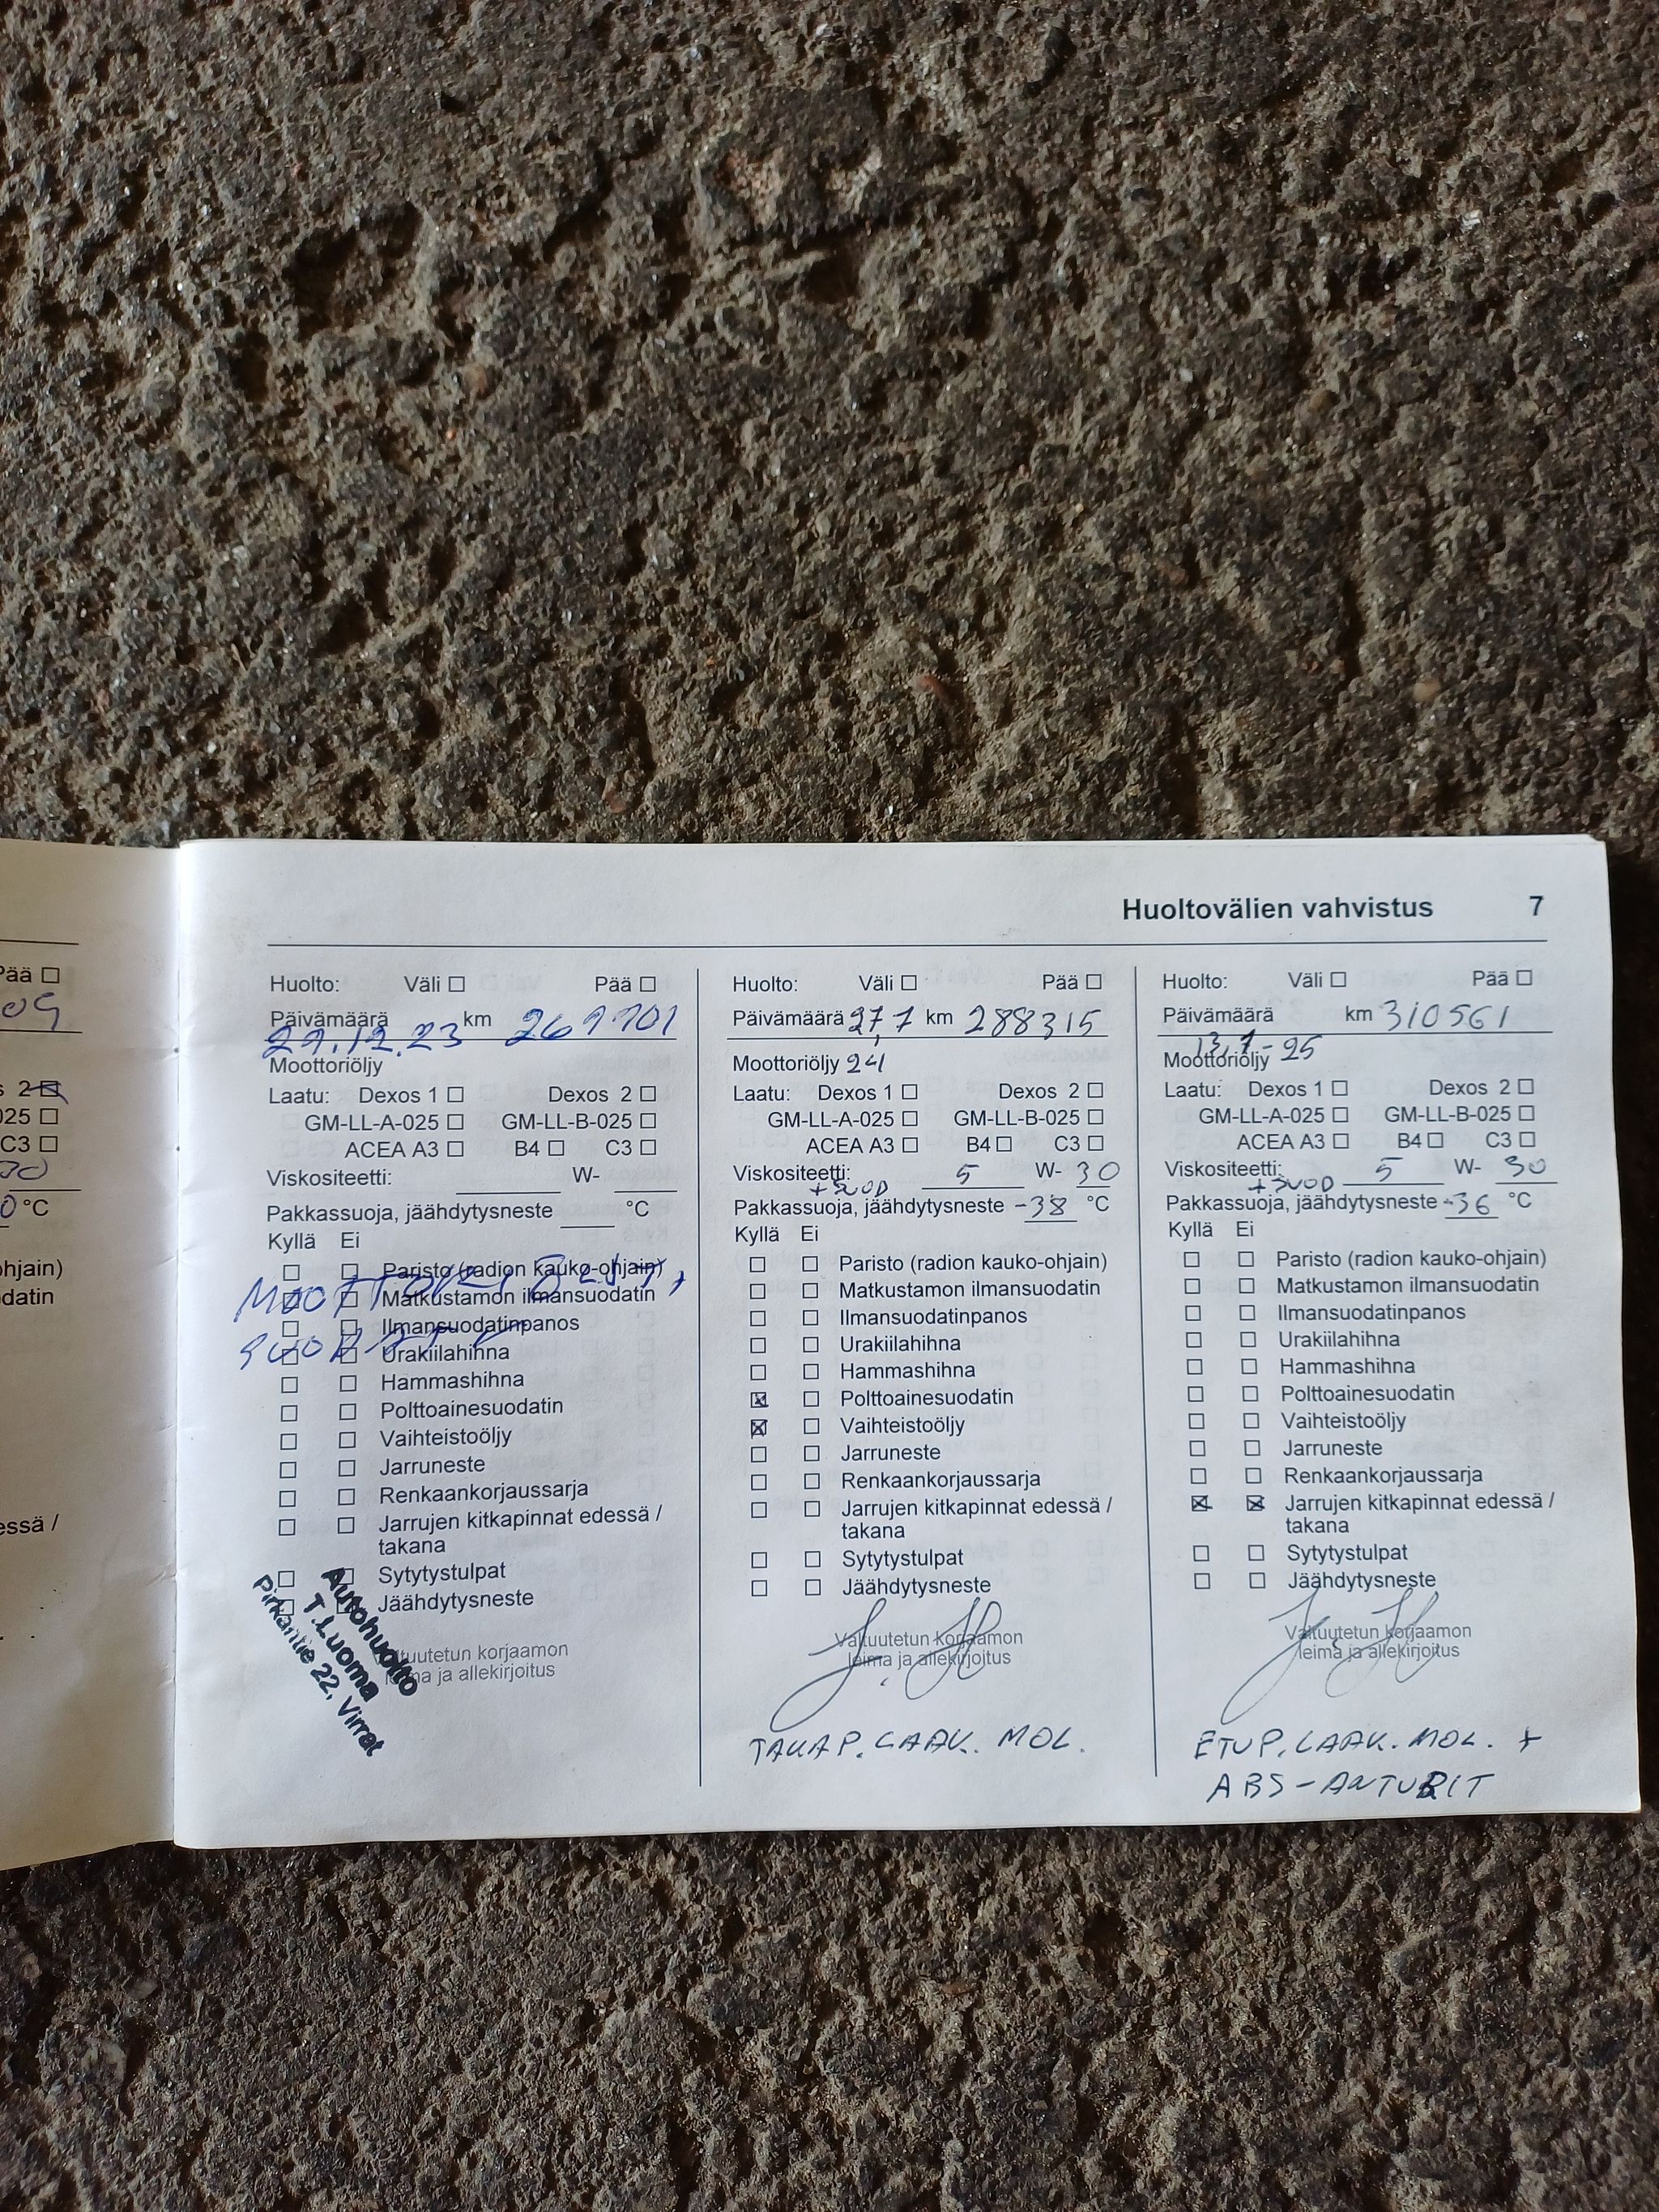 Huoltovälien vahvistus 7
Pää ☐
09
s 2☒
025 ☐
C3 ☐
0 °C
hjain)
datin
essä /
Huolto: Väli ☐ Pää ☐
Päivämäärä km
Moottoriöljy
Laatu: Dexos 1 ☐ Dexos 2 ☐
GM-LL-A-025 ☐ GM-LL-B-025 ☐
ACEA A3 ☐ B4 ☐ C3 ☐
Viskositeetti: W-
Pakkassuoja, jäähdytysneste °C
Kyllä Ei
☐ ☐ Paristo (radion kauko-ohjain)
MOOTTORIÖLJY,
☐ ☐ Matkustamon ilmansuodatin
☐ ☐ Ilmansuodatinpanos
☐ ☐ Urakiilahihna
☐ ☐ Hammashihna
☐ ☐ Polttoainesuodatin
☐ ☐ Vaihteistoöljy
☐ ☐ Jarruneste
☐ ☐ Renkaankorjaussarja
☐ ☐ Jarrujen kitkapinnat edessä /
takana
☐ ☐ Sytytystulpat
☐ ☐ Jäähdytysneste
Autohuolto
T.Luoma
Pirkantie 22, Virrat
korjaamon
ja allekirjoitus
Huolto: Väli ☐ Pää ☐
Päivämäärä 27,7 km 288315
Moottoriöljy 24
Laatu: Dexos 1 ☐ Dexos 2 ☐
GM-LL-A-025 ☐ GM-LL-B-025 ☐
ACEA A3 ☐ B4 ☐ C3 ☐
Viskositeetti: 5 W- 30
+SUOD
Pakkassuoja, jäähdytysneste -38 °C
Kyllä Ei
☐ ☐ Paristo (radion kauko-ohjain)
☐ ☐ Matkustamon ilmansuodatin
☐ ☐ Ilmansuodatinpanos
☐ ☐ Urakiilahihna
☐ ☐ Hammashihna
☒ ☐ Polttoainesuodatin
☒ ☐ Vaihteistoöljy
☐ ☐ Jarruneste
☐ ☐ Renkaankorjaussarja
☐ ☐ Jarrujen kitkapinnat edessä /
takana
☐ ☐ Sytytystulpat
☐ ☐ Jäähdytysneste
Valtuutetun korjaamon
leima ja allekirjoitus
TAKAP. LAAK. MOL.
Huolto: Väli ☐ Pää ☐
Päivämäärä km 310561
Moottoriöljy
Laatu: Dexos 1 ☐ Dexos 2 ☐
GM-LL-A-025 ☐ GM-LL-B-025 ☐
ACEA A3 ☐ B4 ☐ C3 ☐
Viskositeetti: 5 W- 30
+SUOD
Pakkassuoja, jäähdytysneste -36 °C
Kyllä Ei
☐ ☐ Paristo (radion kauko-ohjain)
☐ ☐ Matkustamon ilmansuodatin
☐ ☐ Ilmansuodatinpanos
☐ ☐ Urakiilahihna
☐ ☐ Hammashihna
☐ ☐ Polttoainesuodatin
☐ ☐ Vaihteistoöljy
☐ ☐ Jarruneste
☐ ☐ Renkaankorjaussarja
☒ ☒ Jarrujen kitkapinnat edessä /
takana
☐ ☐ Sytytystulpat
☐ ☐ Jäähdytysneste
Valtuutetun korjaamon
leima ja allekirjoitus
ETUP. LAAK. MOL. +
ABS-ANTURIT